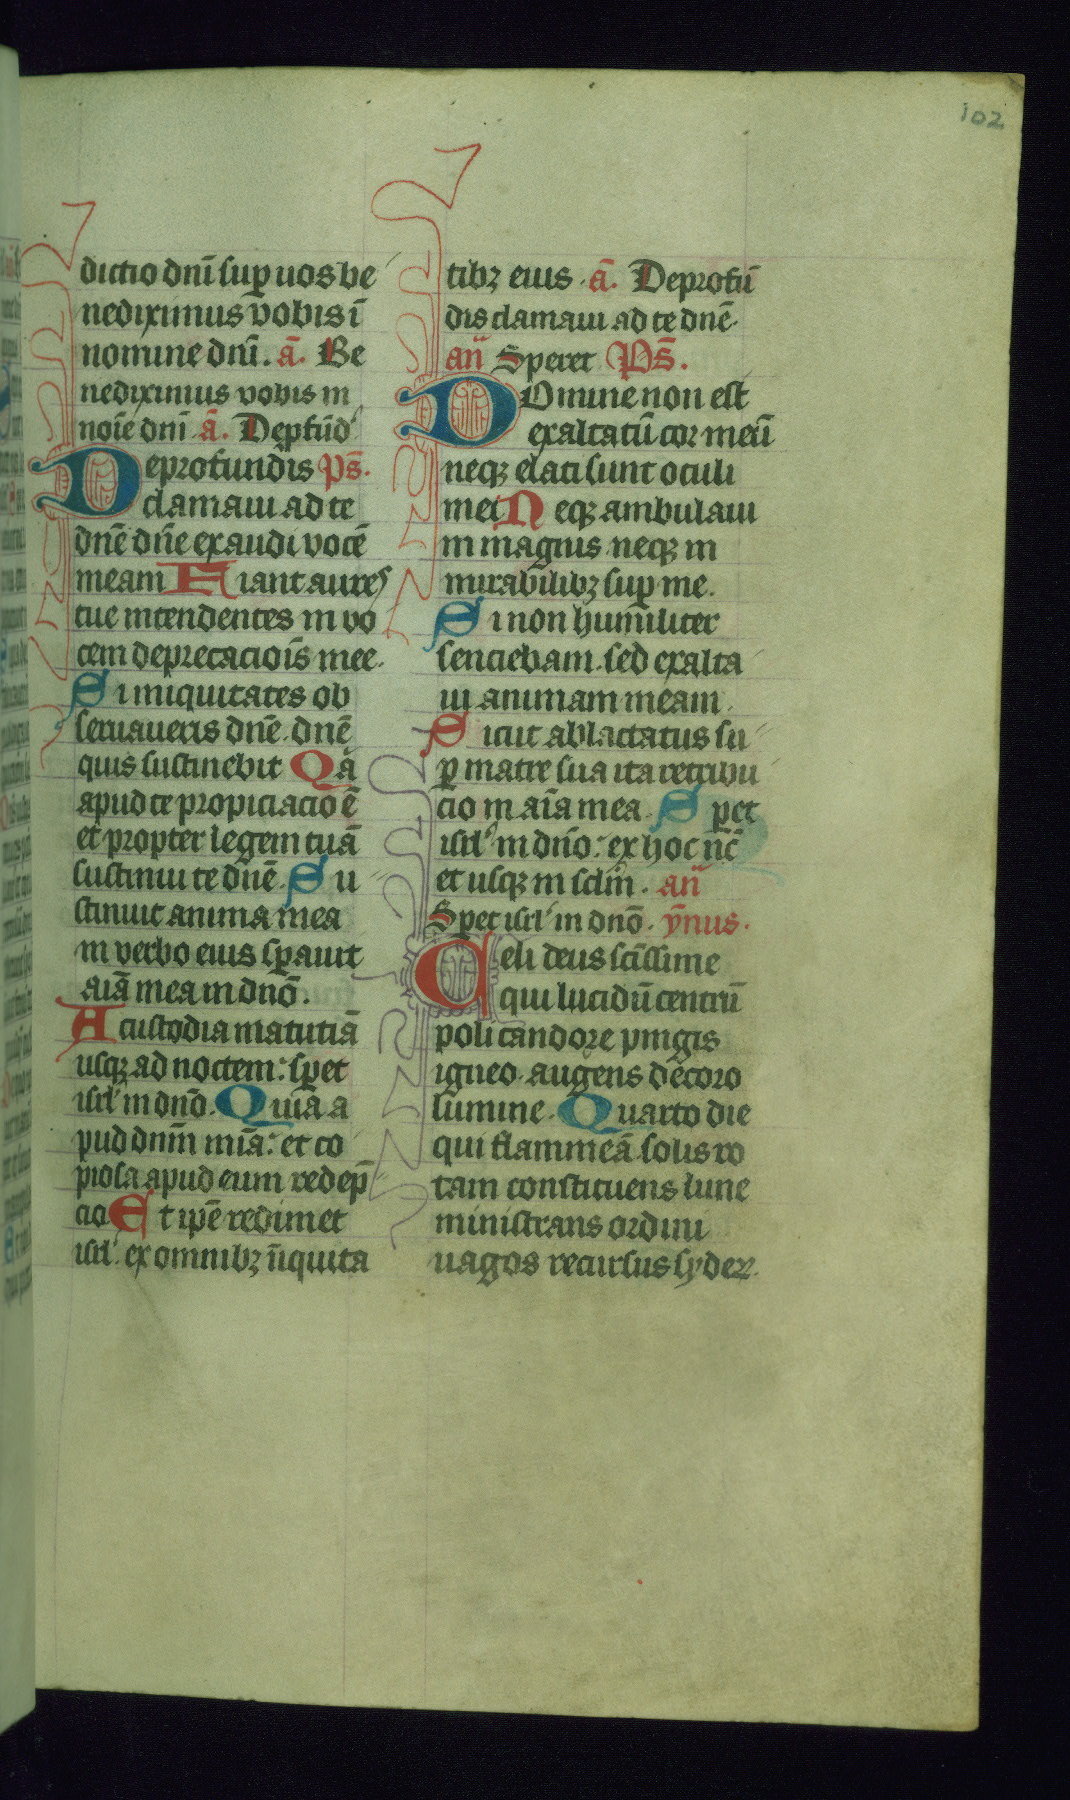 102
dictio dnī sup uos be
nediximus vobis ī
nomine dnī. ā. Be
nediximus vobis in
noīe dnī ā. Depfūd
Deprofundis Ps̄.
clamaui ad te
dnē dnē exaudi vocē
meam Fiant aures
tue intendentes in vo
cem deprecacioīs mee.
Si iniquitates ob
seruaueris dnē. dnē
quis sustinebit Qā
apud te propiciacio ē
et propter legem tuā
sustinui te dnē. Su
stinuit anima mea
in verbo eius spauit
aīa mea in dnō.
A custodia matutīā
usqz ad noctem: spet
isrl' in dnō. Quia a
pud dnm mīa: et co
piosa apud eum redep̄
cio Et ipē redimet
isrl'. ex omnibz īiquita
tibz eius. ā. Deprofū
dis clamaui ad te dnē.
an̄ Speret Ps̄.
Domine non est
exaltatū cor meū
neqz elati sunt oculi
mei Neqz ambulaui
in magnis neqz in
mirabilibz sup me.
Si non humiliter
senciebam. sed exalta
ui animam meam.
Sicut ablactatus su
p matre sua ita retribu
cio in aīa mea. Spet
isrl' in dnō: ex hoc nc̄
et usqz in sclm̄. an̄
Spet isrl' in dnō. ȳnus.
Celi deus sc̄issime
qui lucidū centrū
poli candore pingis
igneo. augens decoro
lumine. Quarto die
qui flammeā solis ro
tam constituens lune
ministrans ordini
uagos recursus syderz.